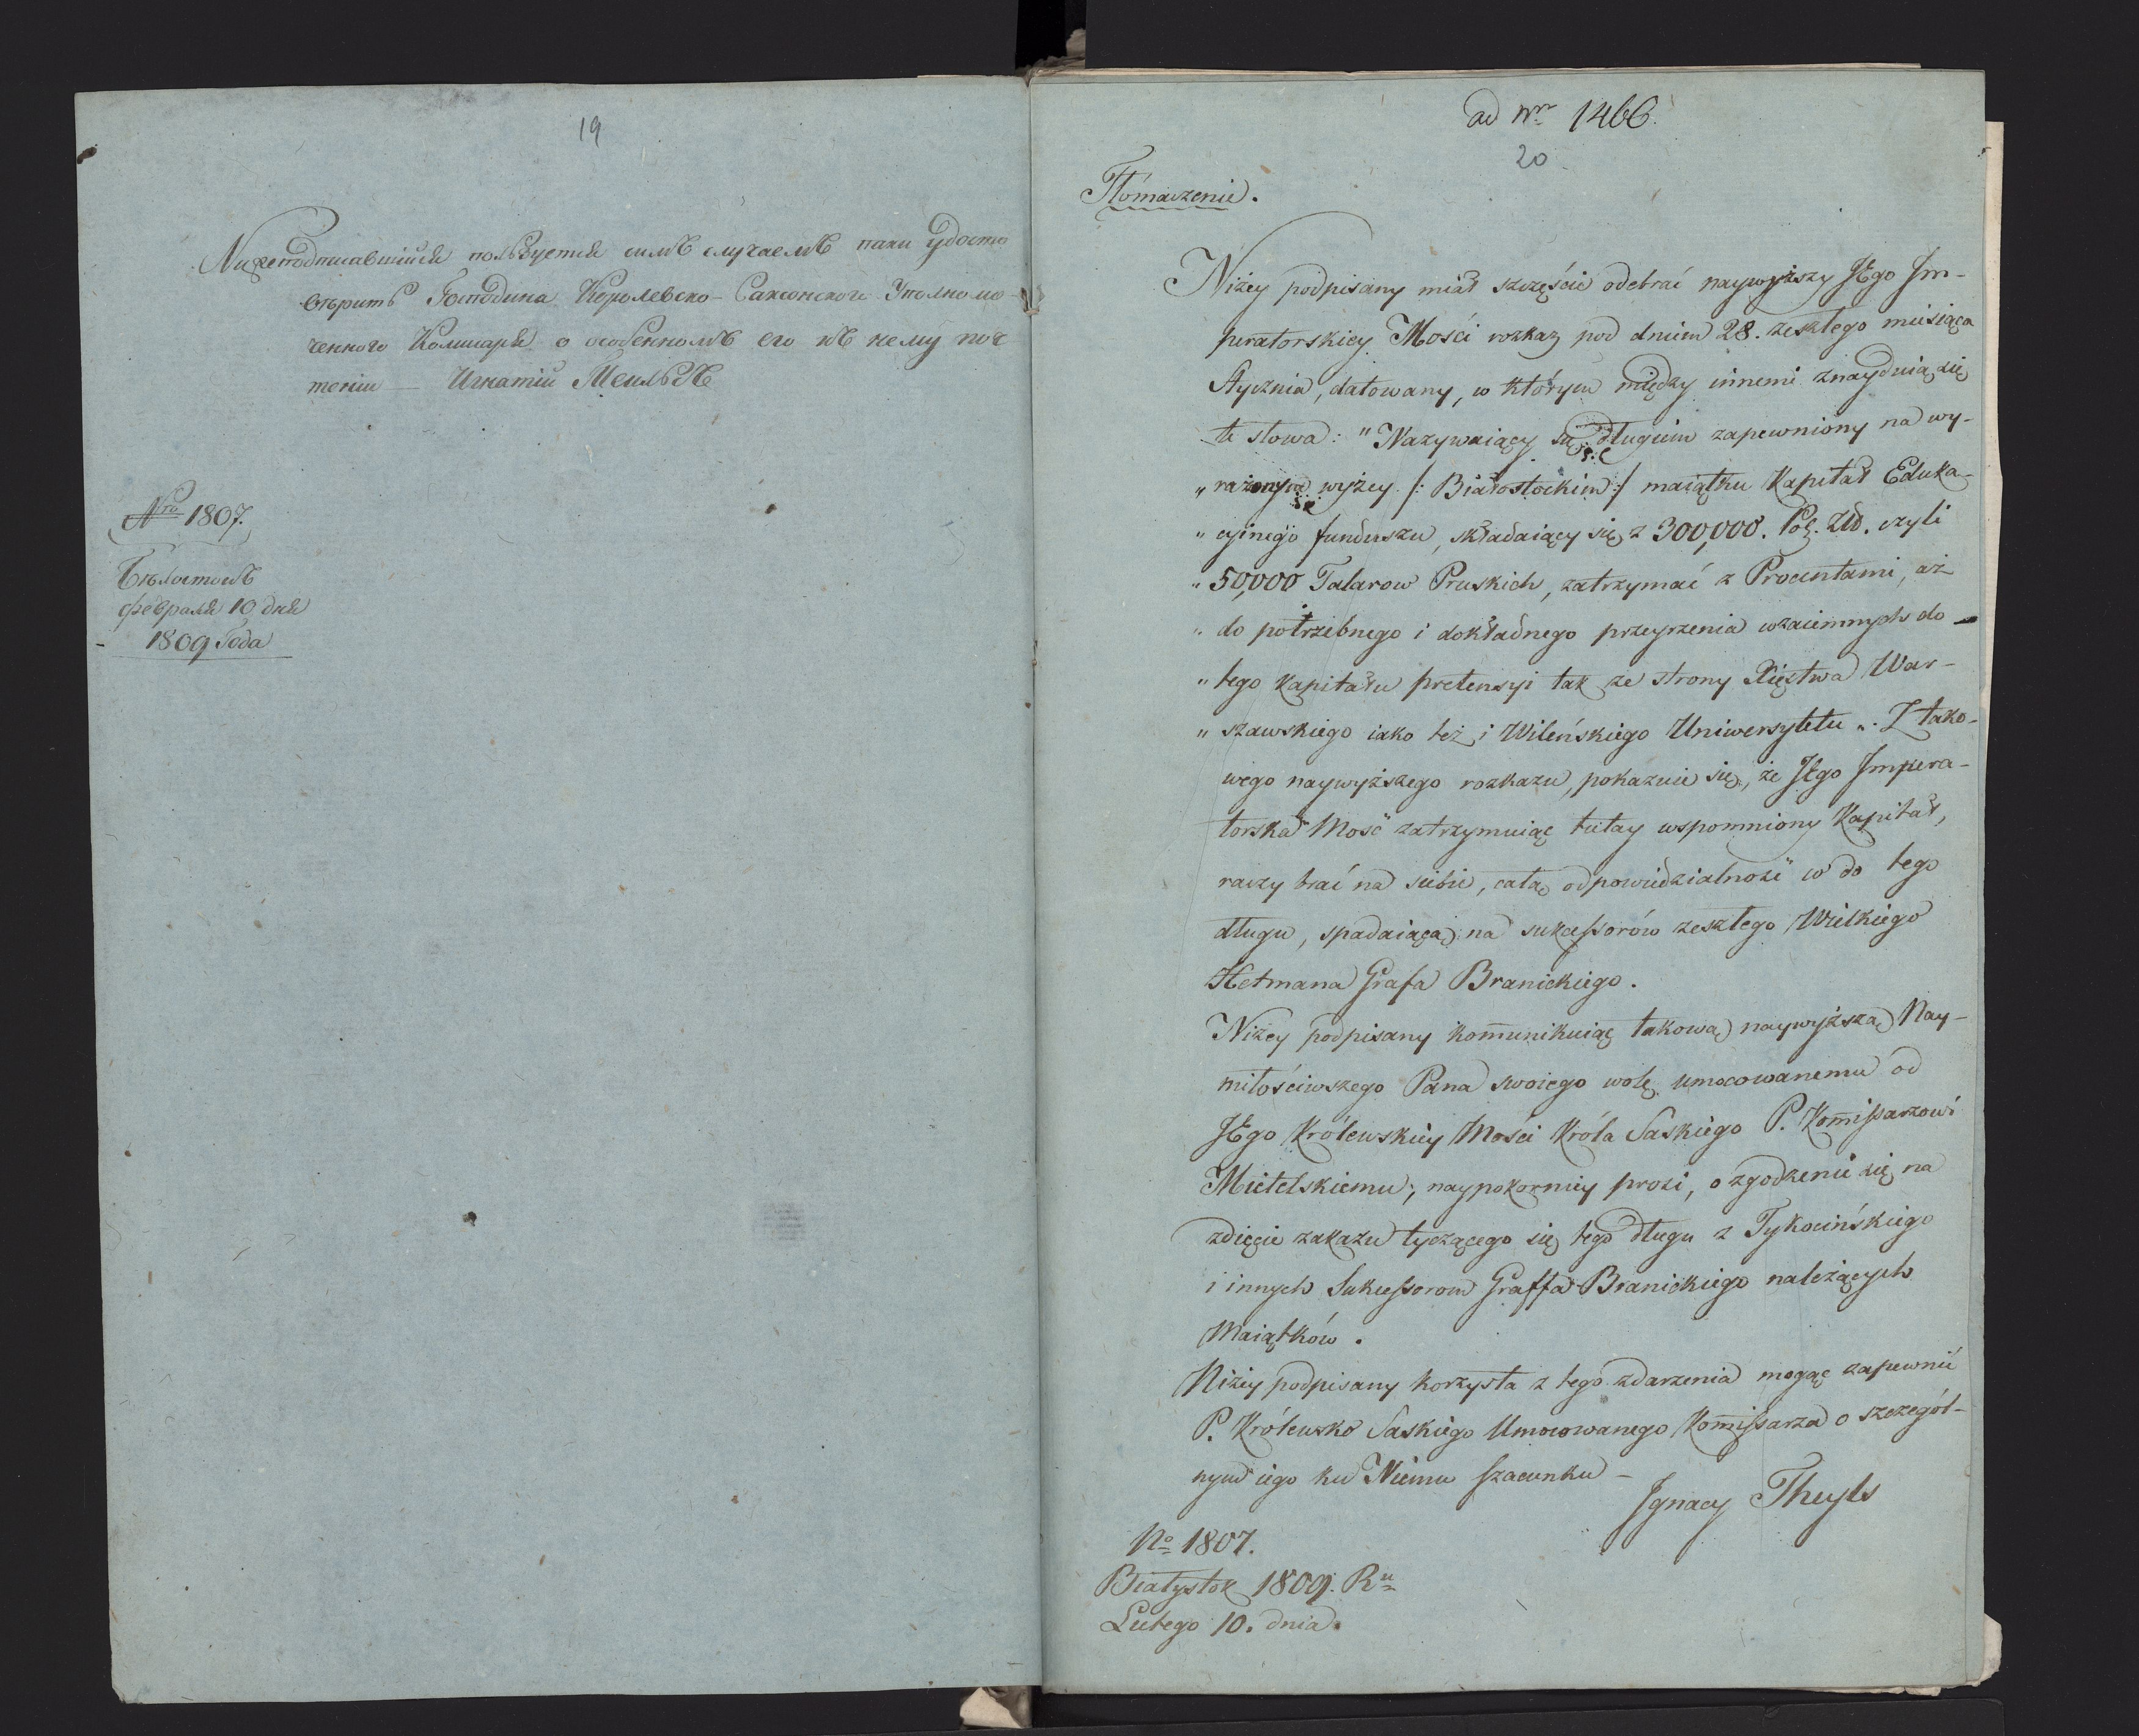 19
Нижеподписавшийся пользуется симъ случаемъ паки удосто
вѣрить Господина Королевско-Саксонскаго Уполномо-
ченнаго Комисаря о особенномъ его къ нему поч
тении — Игнатій Тейльзъ
Nro 1807.
Бѣлостокъ
февраля 10 дня
1809 Года
ad Nrm 1466.
20
Tłómaczenie.
Niżey podpisany miał szczęście odebrać naywyższy JEgo Jm-
peratorskiey Mości rozkaz pod dniem 28. zeszłego miesiąca
Stycznia, datowany, w którym między innemi znayduią się
te słowa: "Nazywaiący się długiem zapewniony na wy-
" rażonym wyżey /: Białostockim :/ maiątku Kapitał Eduka-
" cyinego funduszu, składaiący się z 300,000. Pol. Złł. czyli
" 50,000 Talarow Pruskich, zatrzymać z Procentami, aż
" do potrzebnego i dokładnego przeyrzenia wzaiemnych do
" tego kapitału pretensyi tak ze strony Xięstwa War-
" szawskiego iako też i Wileńskiego Uniwersytetu". Z tako-
wego naywyższego rozkazu, pokazuie się, że JEgo Jmpera-
torska Mość zatrzymuiąc tutay wspomniony Kapitał,
raczy brać na siebie, całą odpowiedzialność w do tego
długu, spadaiącą na sukcessorów zeszłego Wielkiego
Hetmana Grafa Branickiego.
Niżey podpisany kom̄unikuiąc takową naywyższą Nay-
miłościwszego Pana swoiego wolę umocowanemu od
JEgo Królewskiey Mości Króla Saskiego P. Kom̄issarzowi
Mielelskiemu, naypokorniey prosi, o zgodzenie się na
zdięcie zakazu tyczącego się tego długu z Tykocińskiego
i innych Sukcessorom Graffa Branickiego należących
Maiątków.
Niżey podpisany korzysta z tego zdarzenia mogąc zapewnić
P. Królewsko Saskiego Umocowanego Kom̄issarza o szczegól-
nym iego ku Niemu szacunku —
Jgnacy Theyls
No 1807.
Białystok 1809. Ru
Lutego 10. dnia.